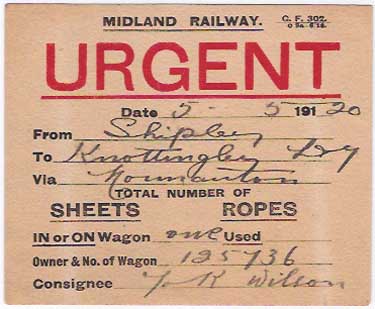 MIDLAND RAILWAY. C. F. 302.
URGENT
Date 5 - 5 191 20
From Shipley
To Knottingley L&Y
Via Normanton
TOTAL NUMBER OF
SHEETS ROPES
IN or ON Wagon one Used
Owner & No. of Wagon 125736
Consignee Wilson